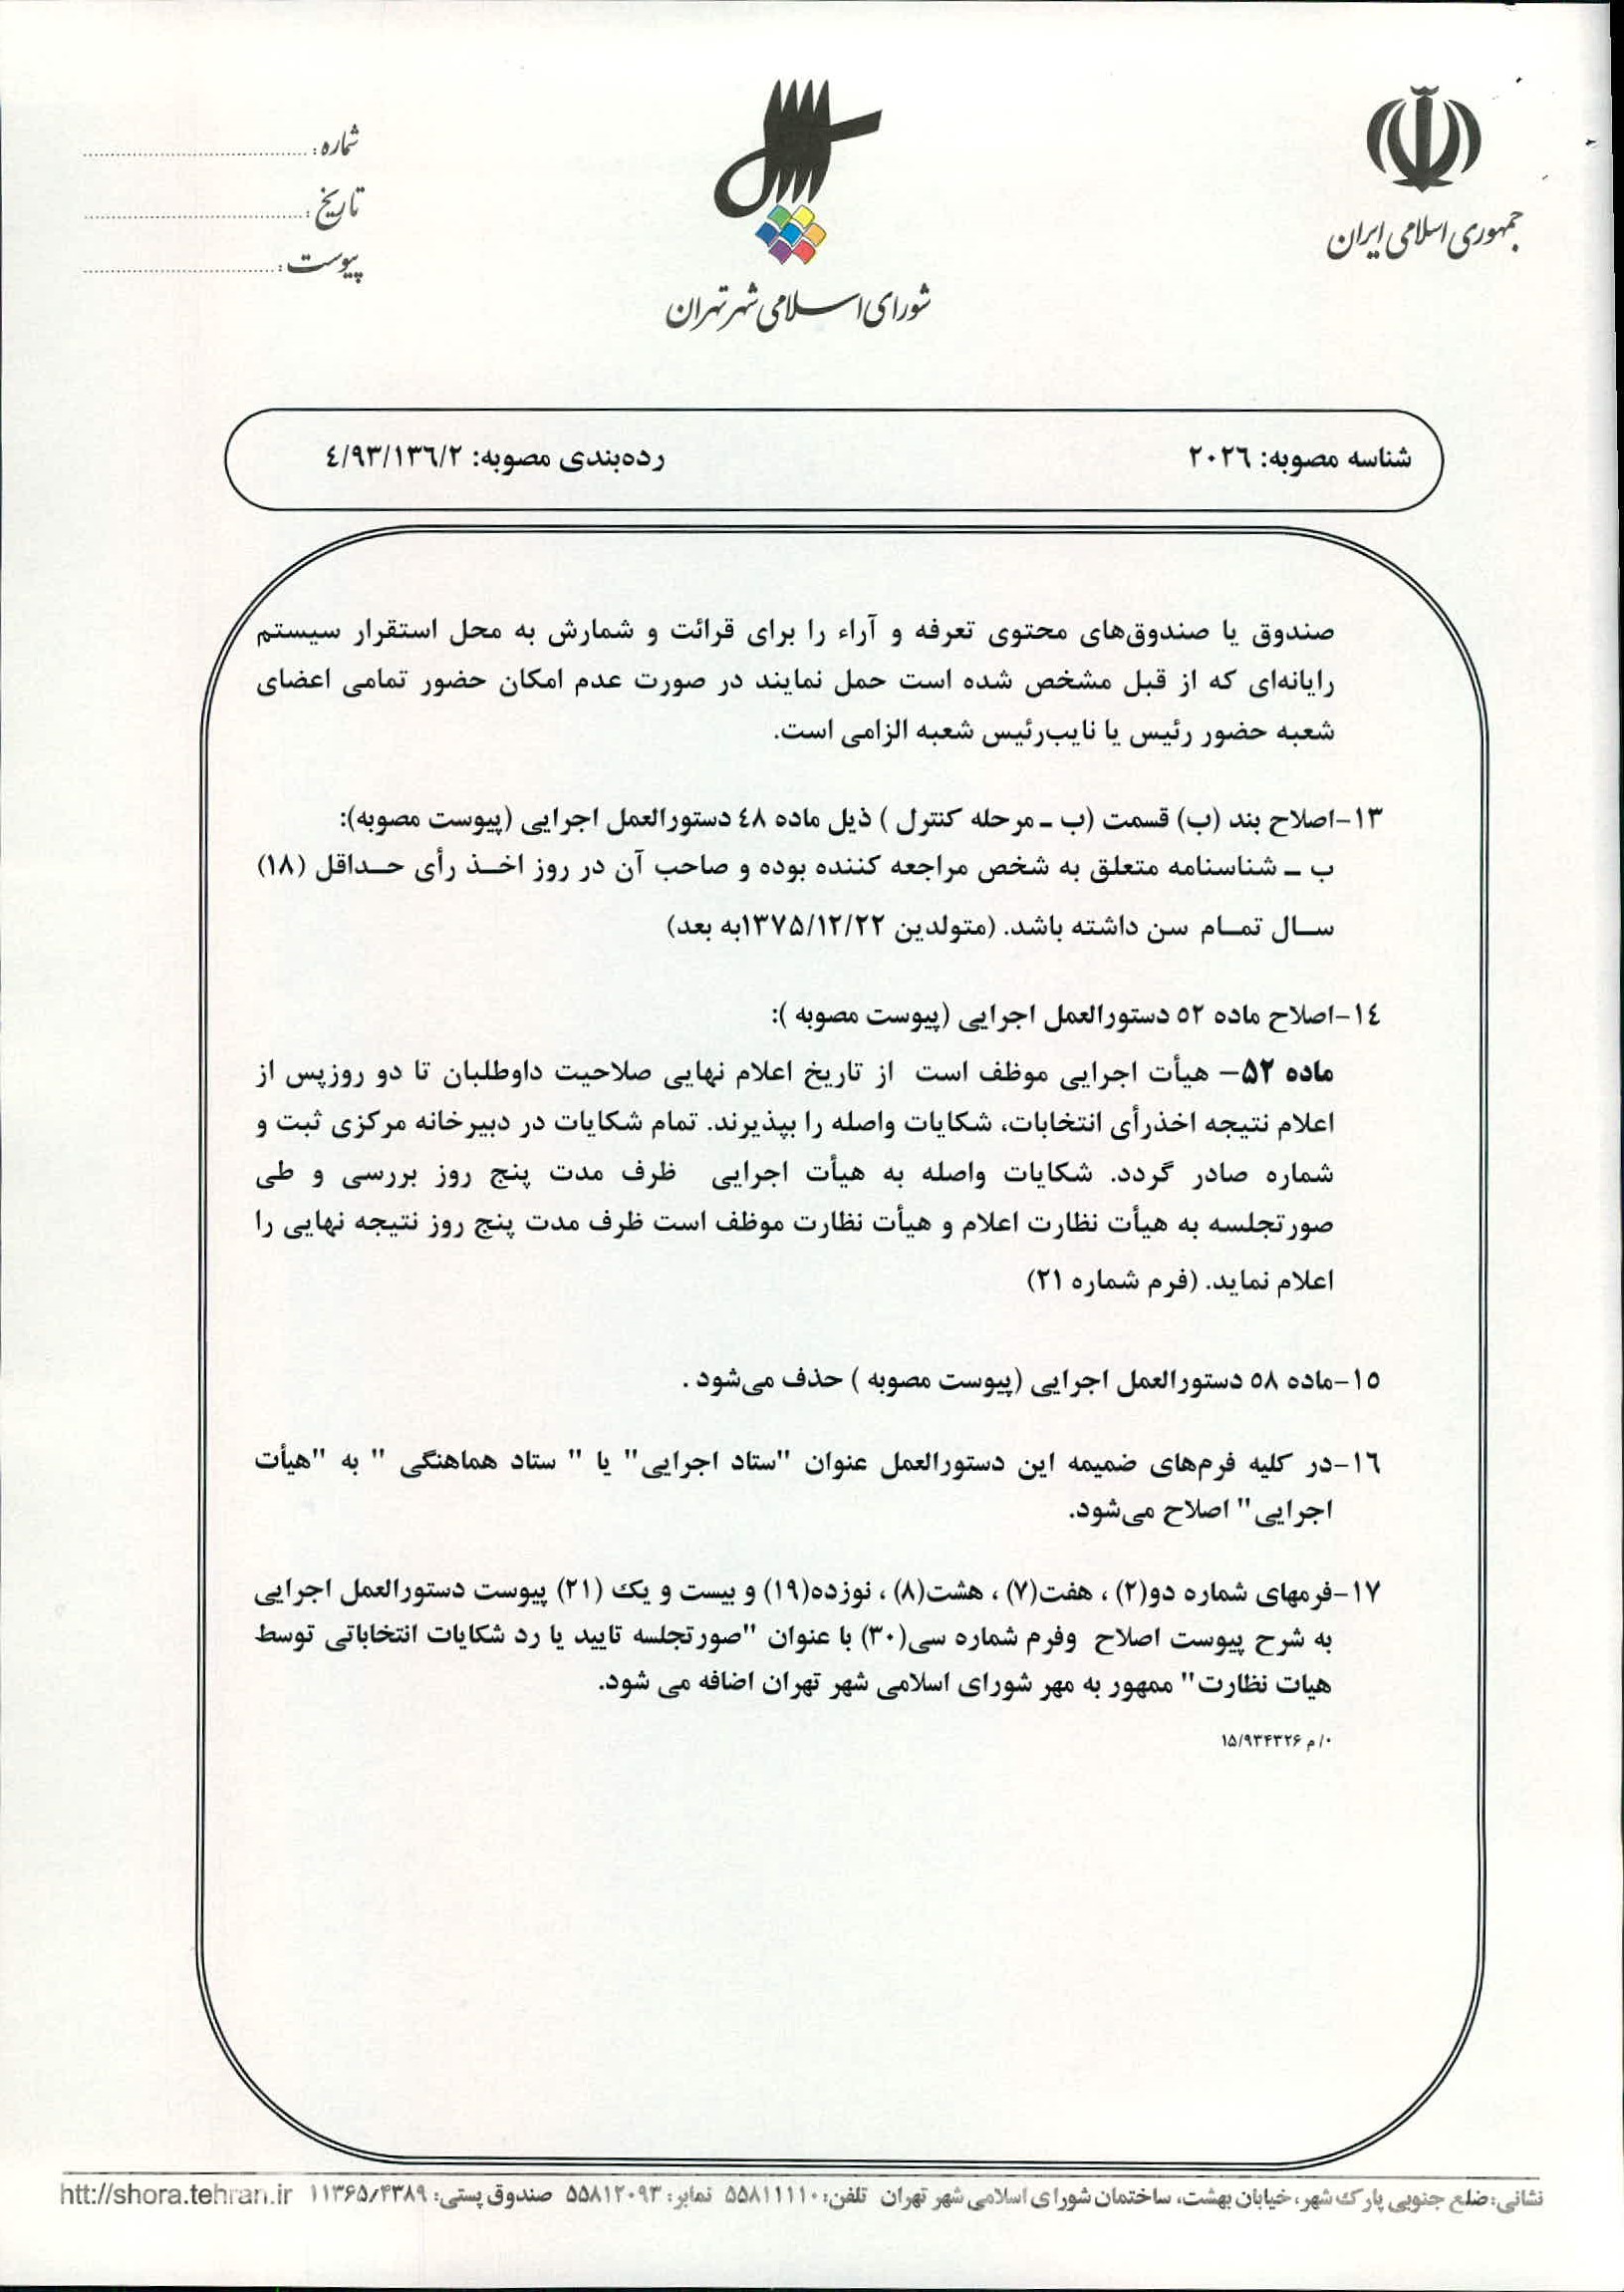 جمهوری اسلامی ایران
شورای اسلامی شهر تهران
شماره:
تاریخ:
پیوست:
شناسه مصوبه: ۲۰۲۶ رده‌بندی مصوبه: ۴/۹۳/۱۳۶/۲
صندوق یا صندوق‌های محتوی تعرفه و آراء را برای قرائت و شمارش به محل استقرار سیستم
رایانه‌ای که از قبل مشخص شده است حمل نمایند در صورت عدم امکان حضور تمامی اعضای
شعبه حضور رئیس یا نایب‌رئیس شعبه الزامی است.
۱۳-اصلاح بند (ب) قسمت (ب ـ مرحله کنترل ) ذیل ماده ۴۸ دستورالعمل اجرایی (پیوست مصوبه):
ب ـ شناسنامه متعلق به شخص مراجعه کننده بوده و صاحب آن در روز اخـذ رأی حـداقل (۱۸)
سـال تمـام سن داشته باشد. (متولدین ۱۳۷۵/۱۲/۲۲به بعد)
۱۴-اصلاح ماده ۵۲ دستورالعمل اجرایی (پیوست مصوبه ):
ماده ۵۲- هیأت اجرایی موظف است از تاریخ اعلام نهایی صلاحیت داوطلبان تا دو روزپس از
اعلام نتیجه اخذرأی انتخابات، شکایات واصله را بپذیرند. تمام شکایات در دبیرخانه مرکزی ثبت و
شماره صادر گردد. شکایات واصله به هیأت اجرایی ظرف مدت پنج روز بررسی و طی
صورتجلسه به هیأت نظارت اعلام و هیأت نظارت موظف است ظرف مدت پنج روز نتیجه نهایی را
اعلام نماید. (فرم شماره ۲۱)
۱۵-ماده ۵۸ دستورالعمل اجرایی (پیوست مصوبه ) حذف می‌شود .
۱۶-در کلیه فرم‌های ضمیمه این دستورالعمل عنوان "ستاد اجرایی" یا " ستاد هماهنگی " به "هیأت
اجرایی" اصلاح می‌شود.
۱۷-فرمهای شماره دو(۲) ، هفت(۷) ، هشت(۸) ، نوزده(۱۹) و بیست و یک (۲۱) پیوست دستورالعمل اجرایی
به شرح پیوست اصلاح وفرم شماره سی(۳۰) با عنوان "صورتجلسه تایید یا رد شکایات انتخاباتی توسط
هیات نظارت" ممهور به مهر شورای اسلامی شهر تهران اضافه می شود.
۰/ م ۱۵/۹۳۴۳۲۶
نشانی: ضلع جنوبی پارک شهر، خیابان بهشت، ساختمان شورای اسلامی شهر تهران تلفن: ۵۵۸۱۱۱۱۰ نمابر: ۵۵۸۱۲۰۹۳ صندوق پستی: ۱۱۳۶۵/۴۳۸۹ htt://shora.tehran.ir